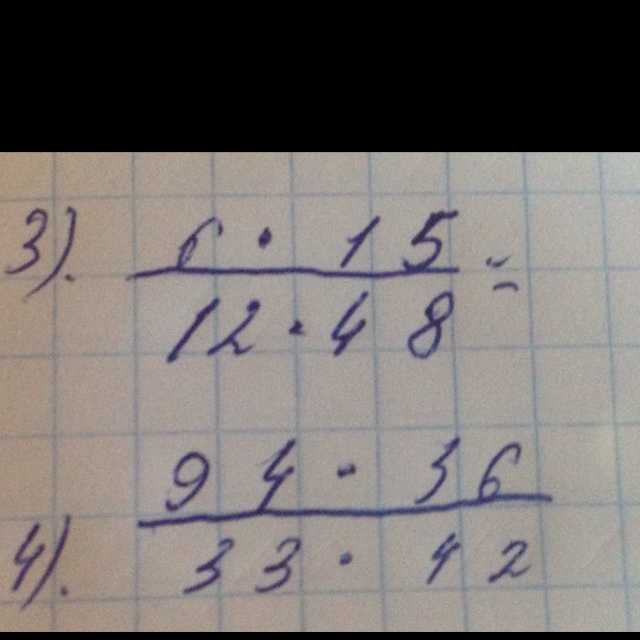 3). 6 · 15 =
12 · 48
94 · 36
4). 33 · 42